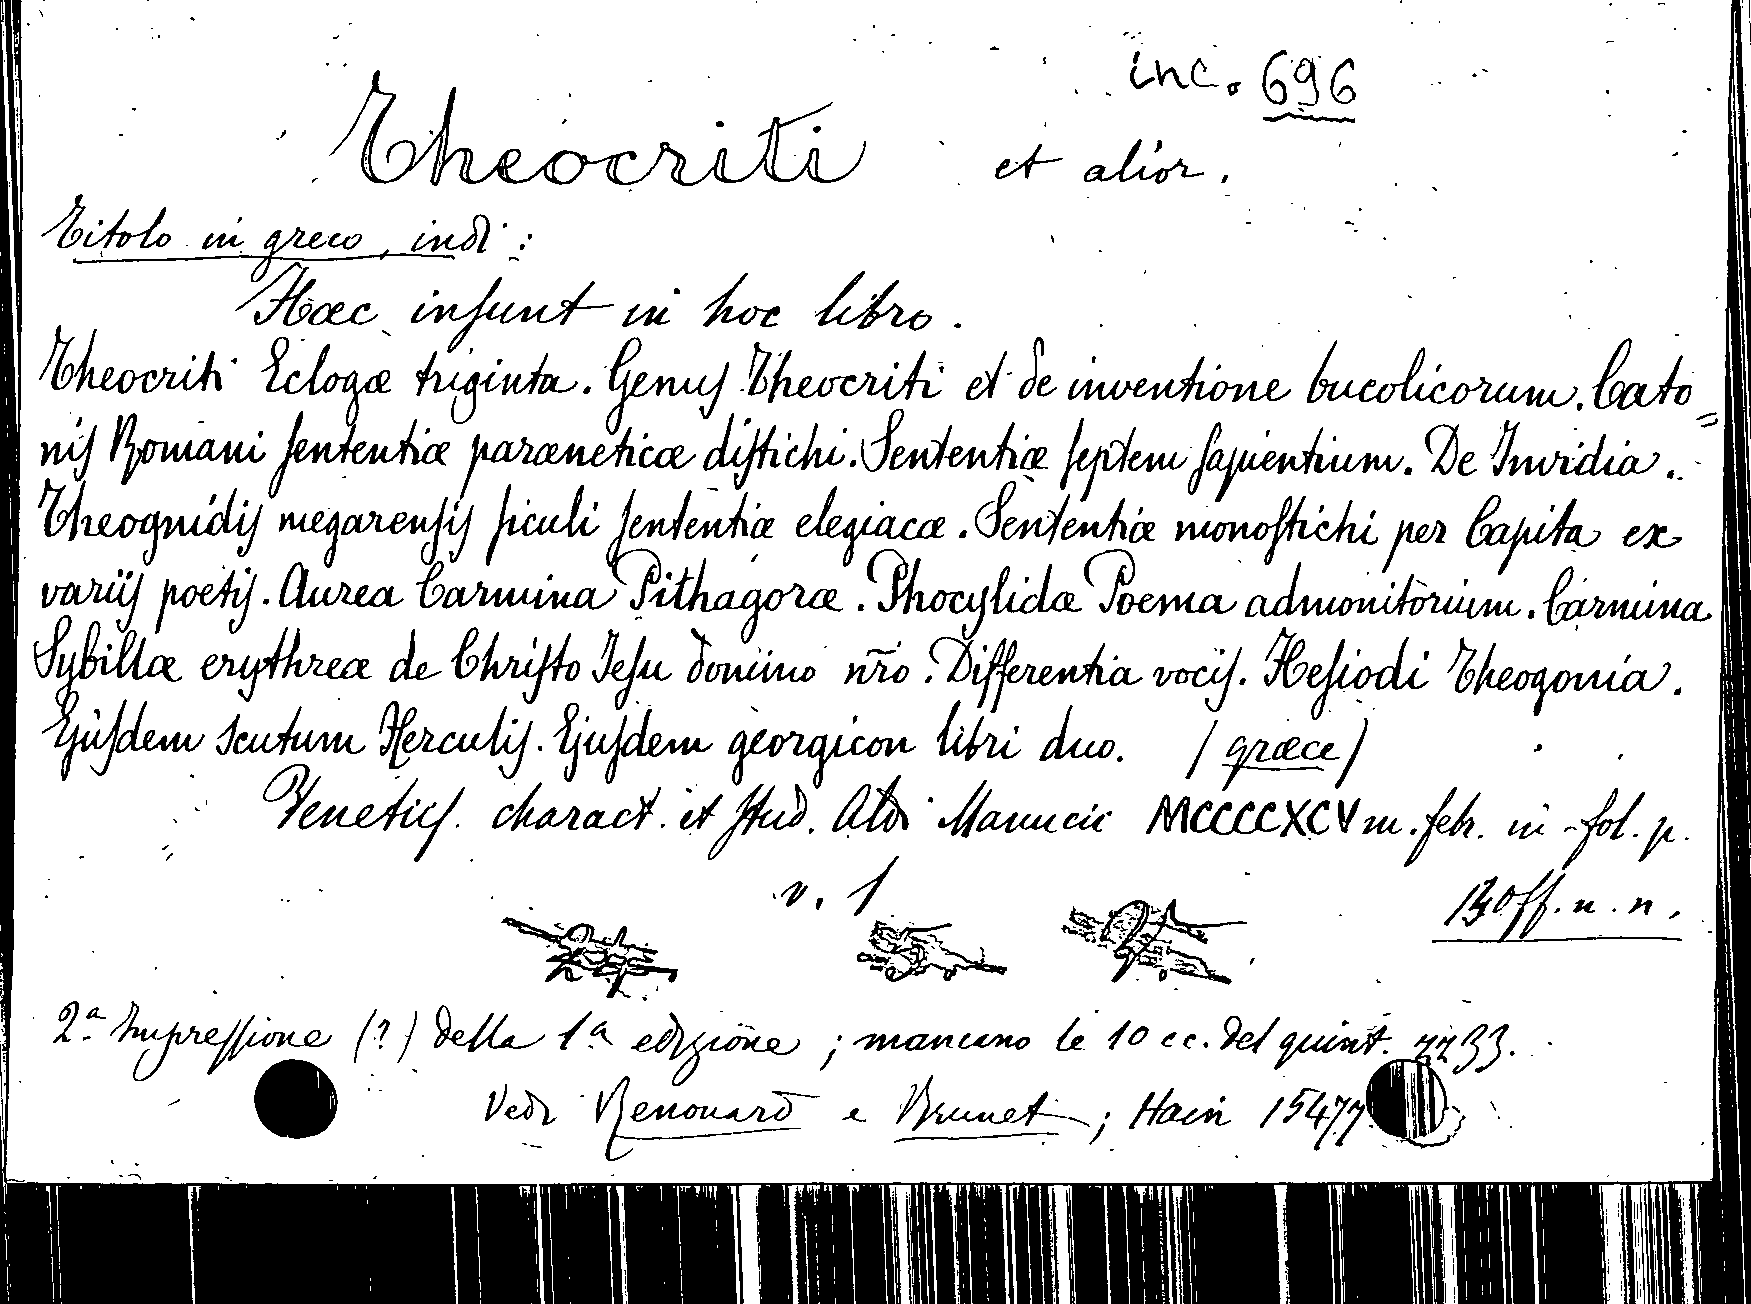 inc. 696
Theocriti et alior.
Titolo in greco, indi:
Hæc insunt in hoc libro.
Theocriti Eclogæ triginta. Genus Theocriti et de inventione bucolicorum. Cato=
nis Romani sententiæ paræneticæ distichi. Sententiæ septem sapientium. De Invidia.
Theognidis megarensis siculi sententiæ elegiacæ. Sententiæ monostichi per Capita ex
variis poetis. Aurea Carmina Pithagoræ. Phocylidæ Poema admonitorium. Carmina
Sybillæ erythreæ de Christo Jesu domino nr̄o. Differentia vocis. Hesiodi Theogonia.
Ejusdem scutum Herculis. Ejusdem georgicon libri duo. (græce)
Venetiis. charact. et stud. Aldi Manucii MCCCCXCV m. febr. in-fol. p.
v. 1
130 ff. n. n.
2.a Impressione (?) della 1.a edizione; mancano le 10 cc. del quint.
Vedi Renouard e Brunet; Hain 15477